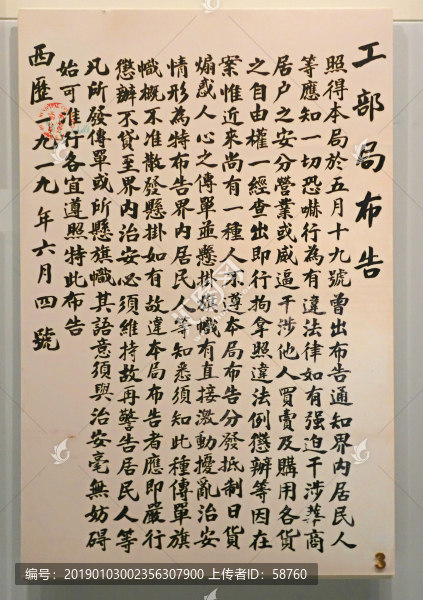 工部局布告
照得本局於五月十九號曾出布告通知界內居民人
等應知一切恐嚇行為有違法律如有强迫干涉華商
居戶之安分營業或威逼干涉他人買賣及購用各貨
之自由權一經查出即行拘拿照違法例懲辦等因在
案惟近來尚有一種人未遵本局布告分發抵制日貨
煽惑人心之傳單並懸掛旗幟有直接激動擾亂治安
情形為特布告界內居民人等知悉須知此種傳單旗
幟概不准散發懸掛如有故違本局布告者應即嚴行
懲辦不貸至界內治安必須維持故再警告居民人等
凡所發傳單或所懸旗幟其語意須與治安毫無妨礙
始可准行各宜遵照特此布告
西匯一九一九年六月四號
3
编号：20190103002356307900 上传者ID：58760